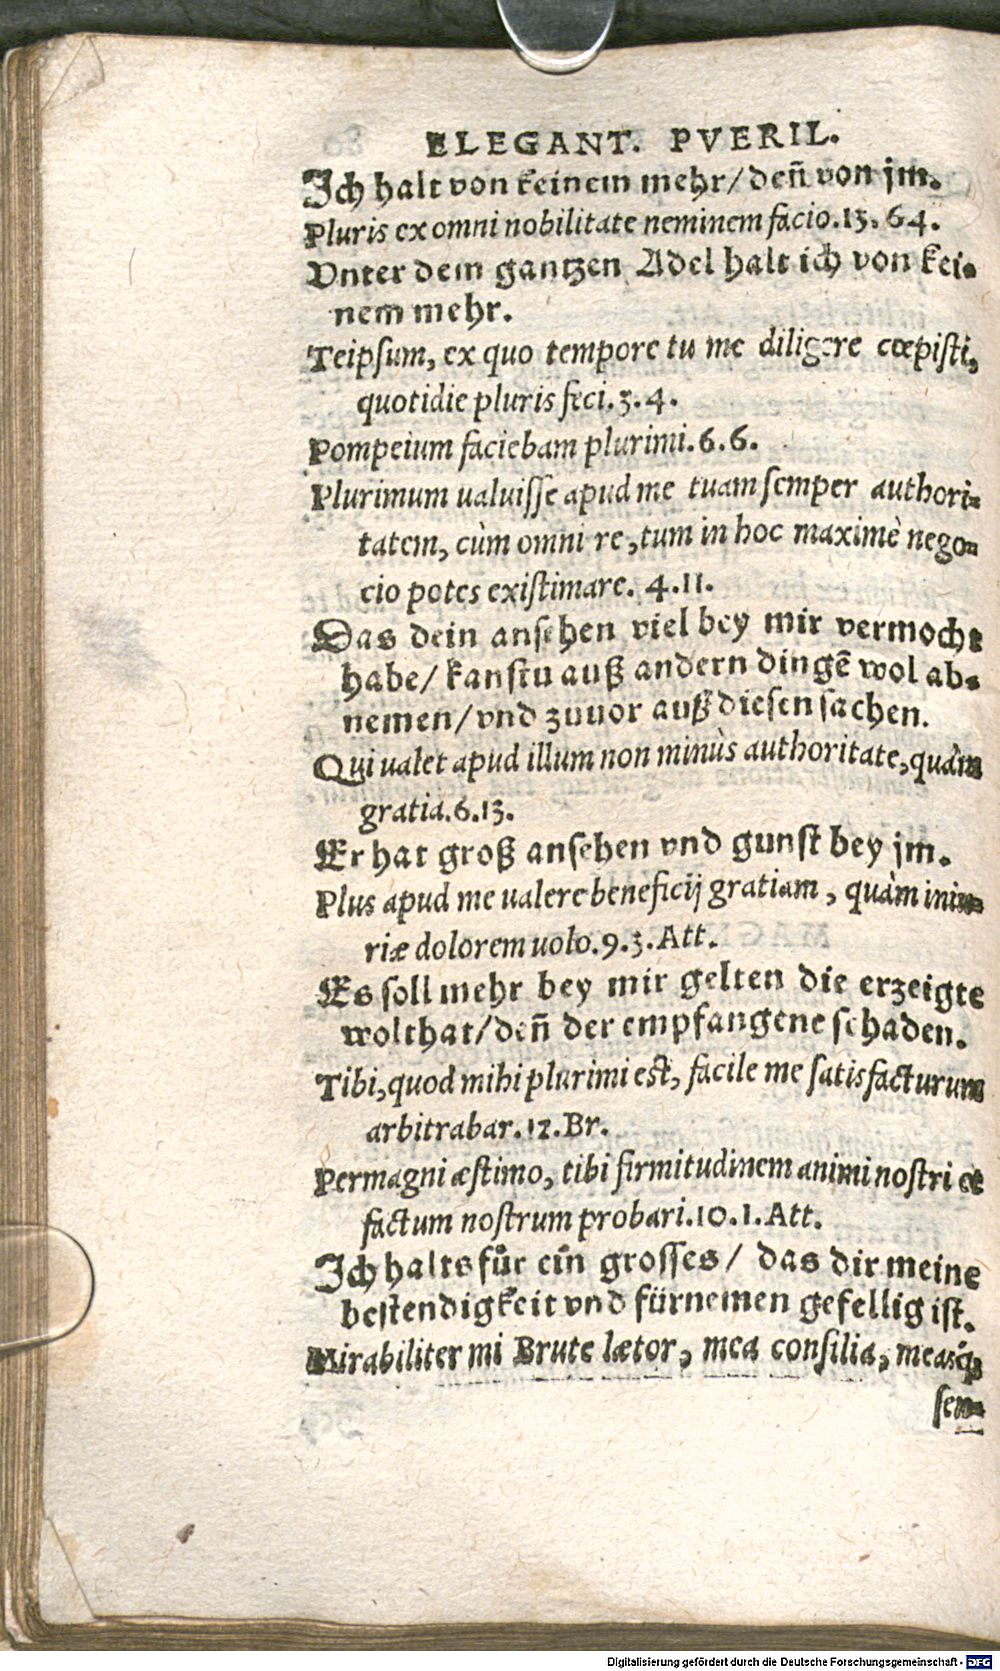 ELEGANT. PVERIL.
Ich halt von keinem mehr/ deñ von jm.
Pluris ex omni nobilitate neminem facio. 13. 64.
Vnter dem gantzen Adel halt ich von kei-
nem mehr.
Teipsum, ex quo tempore tu me diligere cœpisti,
quotidie pluris feci. 3. 4.
Pompeium faciebam plurimi. 6. 6.
Plurimum ualuisse apud me tuam semper authori-
tatem, cùm omni re, tum in hoc maximè nego-
cio potes existimare. 4. 11.
Das dein ansehen viel bey mir vermocht
habe/ kanstu auß andern dingẽ wol ab-
nemen/ vnd zuuor auß diesen sachen.
Qui ualet apud illum non minùs authoritate, quàm
gratia. 6. 13.
Er hat groß ansehen vnd gunst bey jm.
Plus apud me ualere beneficij gratiam, quàm iniu-
riæ dolorem uolo. 9. 3. Att.
Es soll mehr bey mir gelten die erzeigte
wolthat/ deñ der empfangene schaden.
Tibi, quod mihi plurimi est, facile me satisfacturum
arbitrabar. 12. Br.
Permagni æstimo, tibi firmitudinem animi nostri et
factum nostrum probari. 10. 1. Att.
Ich halts fůr ein grosses/ das dir meine
bestendigkeit vnd fürnemen gefellig ist.
Mirabiliter mi Brute lætor, mea consilia, measq́;
sen-
Digitalisierung gefördert durch die Deutsche Forschungsgemeinschaft - DFG